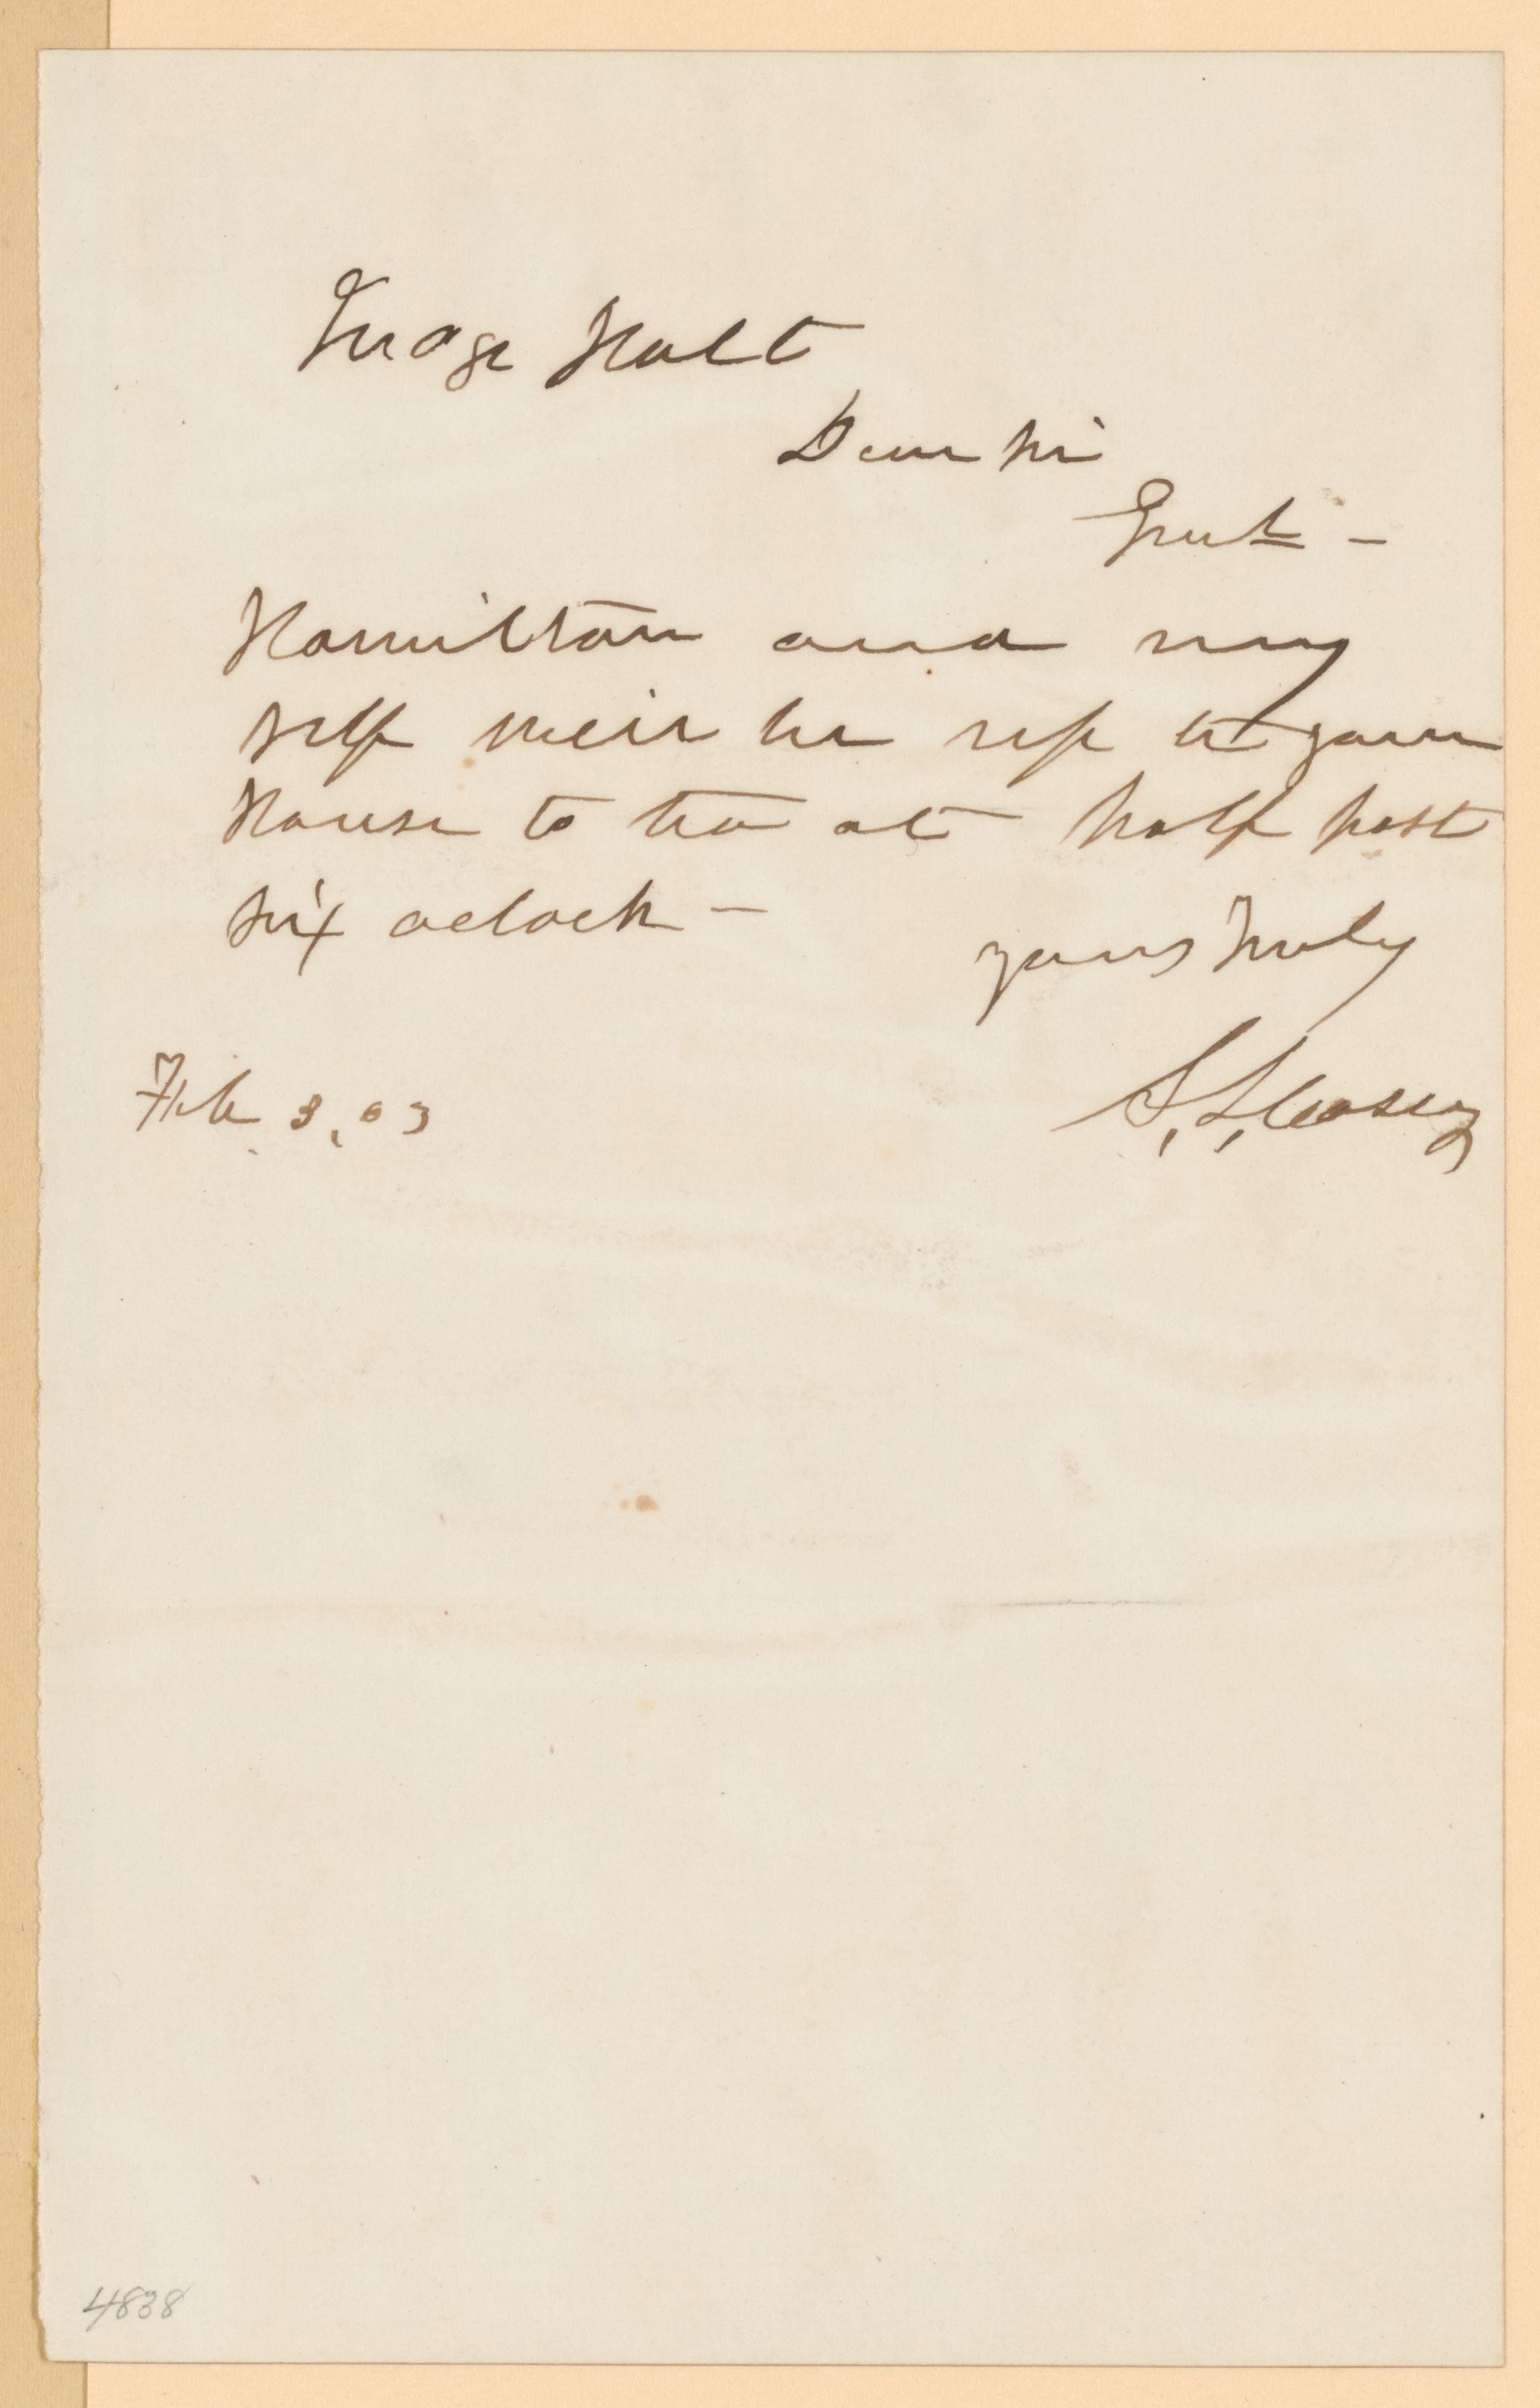 Judge Holt
Dear Sir
Govt –
Hamilton and my
self will be up at your
House to tea at half past
six oclock –
yours truly
S. L. Casey
Feb 3, 63
4838